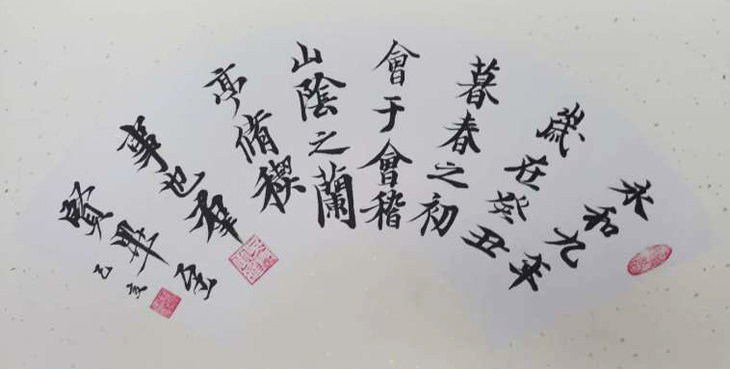 永和九年
歲在癸丑
暮春之初
會于會稽
山陰之蘭
亭脩稧
事也羣
賢畢至
己亥